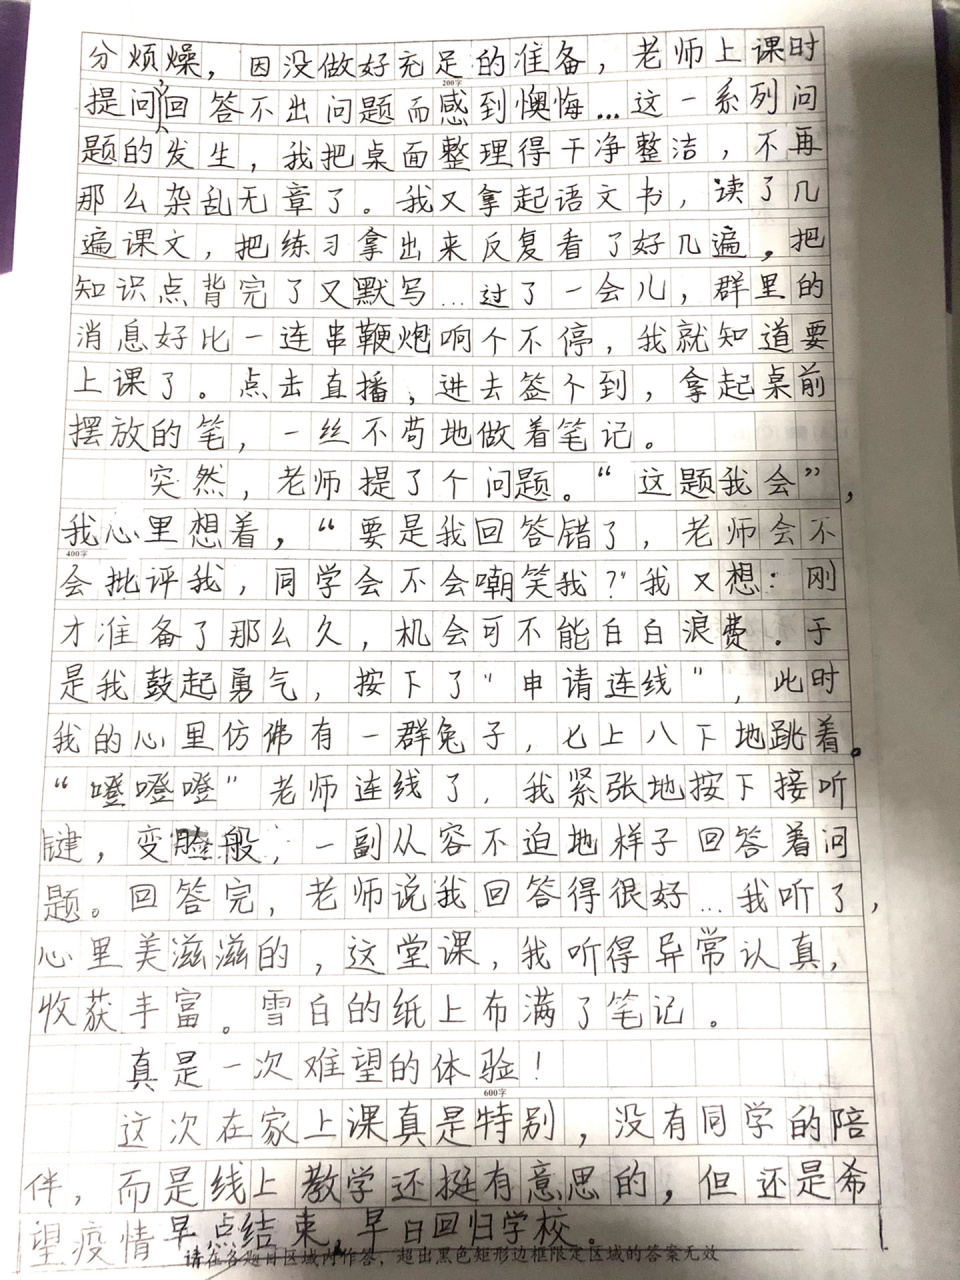 分烦燥，因没做好充足的准备，老师上课时
200字
提问回答不出问题而感到懊悔...这一系列问
题的发生，我把桌面整理得干净整洁，不再
那么杂乱无章了。我又拿起语文书，读了几
遍课文，把练习拿出来反复看了好几遍，把
知识点背完了又默写...过了一会儿，群里的
消息好比一连串鞭炮响个不停，我就知道要
上课了。点击直播，进去签个到，拿起桌前
摆放的笔，一丝不苟地做着笔记。
突然，老师提了个问题。“这题我会”，
我心里想着，“要是我回答错了，老师会不
400字
会批评我，同学会不会嘲笑我？”我又想：刚
才准备了那么久，机会可不能白白浪费。于
是我鼓起勇气，按下了“申请连线”，此时
我的心里仿佛有一群兔子，七上八下地跳着。
“噔噔噔”老师连线了，我紧张地按下接听
键，变脸般，一副从容不迫地样子回答着问
题。回答完，老师说我回答得很好...我听了，
心里美滋滋的，这堂课，我听得异常认真，
收获丰富。雪白的纸上布满了笔记。
真是一次难望的体验！
600字
这次在家上课真是特别，没有同学的陪
伴，而是线上教学还挺有意思的，但还是希
望疫情早点结束，早日回归学校。
请在各题目区域内作答，超出黑色矩形边框限定区域的答案无效